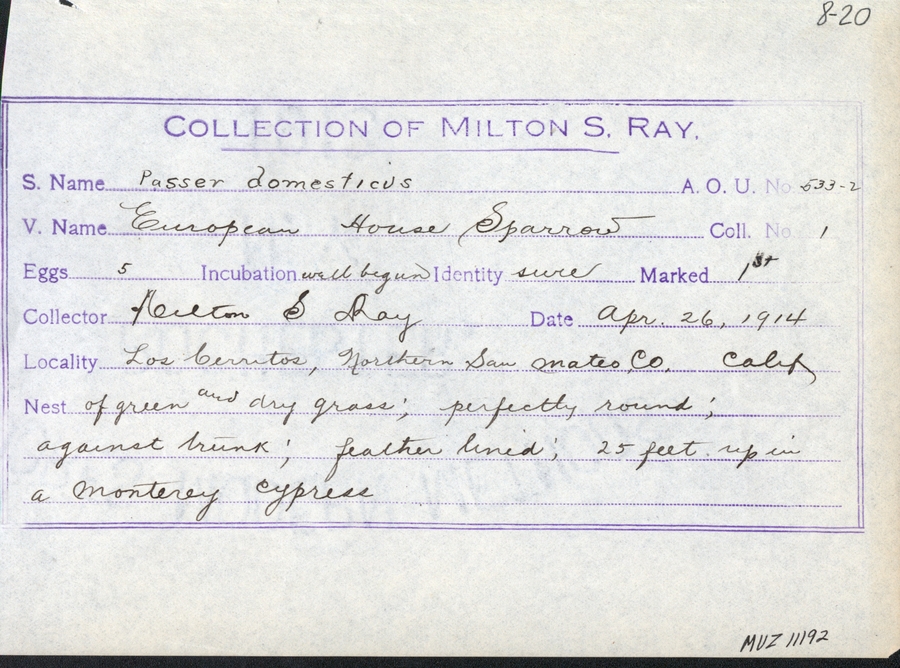 8-20
COLLECTION OF MILTON S. RAY.
S. Name Passer domesticus A. O. U. No 533-2
V. Name European House Sparrow Coll. No 1
Eggs 5 Incubation well begun Identity sure Marked 1st
Collector Milton S Ray Date Apr. 26, 1914
Locality Los Cerritos, Northern San Mateo Co. Calif
Nest of green and dry grass; perfectly round;
against trunk; feather lined; 25 feet up in
a Monterey cypress
MVZ 11192